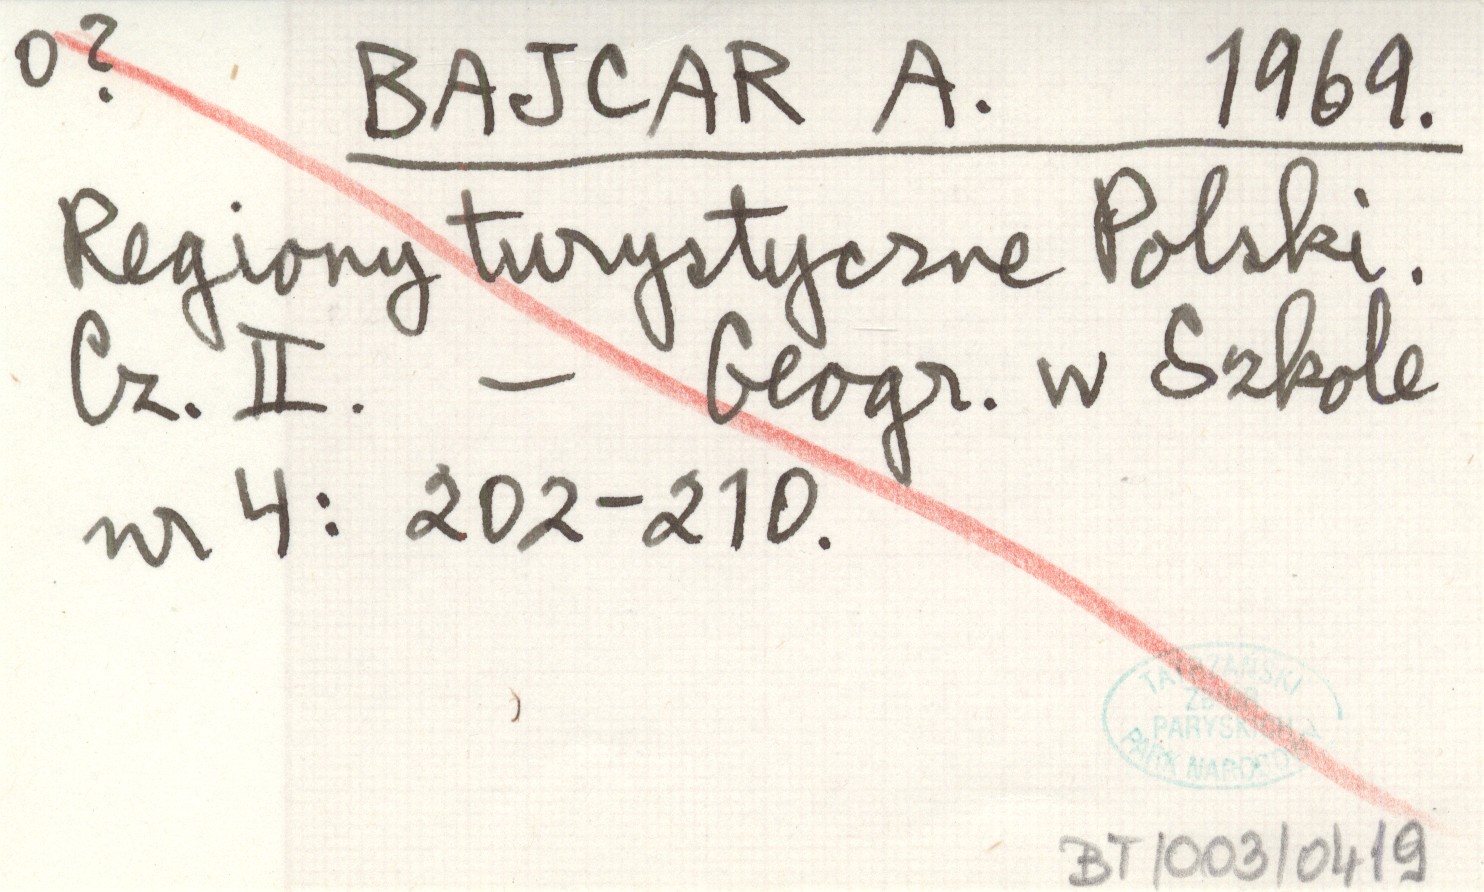 o?
BAJCAR A. 1969.
Regiony turystyczne Polski.
Cz. II. — Geogr. w Szkole
nr 4: 202-210.
TATRZAŃSKI
ZBIÓR
PARYSKICH
PARK NARODOWY
BT/003/0419